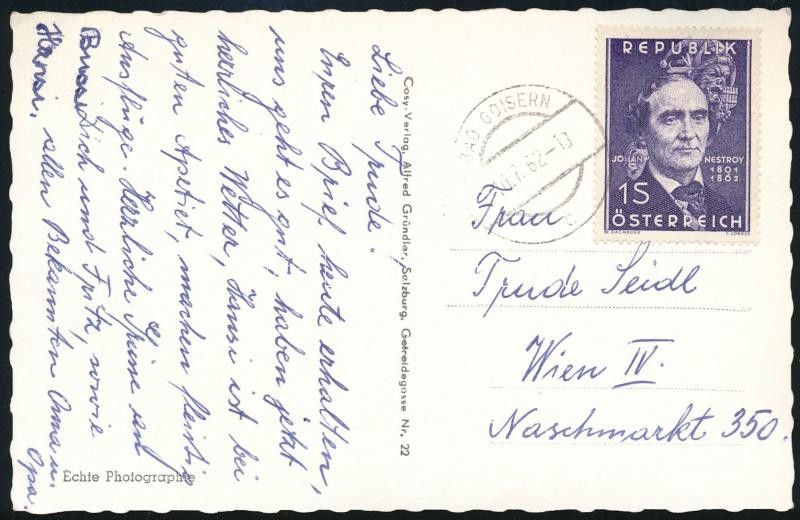 Liebe Trude.
Euren Brief heute erhalten,
uns geht es gut, haben jetzt
herrliches Wetter, Hansi ist bei
guten Apetiet, machen fleißig
Ausflüge. Herzliche Grüsse und
Bussi Dich und Fritz, sowie
Hansi, allen Bekannten Oma u.
Opa.
Echte Photographie
Cosy-Verlag, Alfred Gründler, Salzburg, Getreidegasse Nr. 22
BAD GOISERN
.7.62-13
C
REPUBLIK
JOHANN NESTROY
1801
1862
1S
ÖSTERREICH
Frau
Trude Seidl
Wien IV.
Naschmarkt 350.